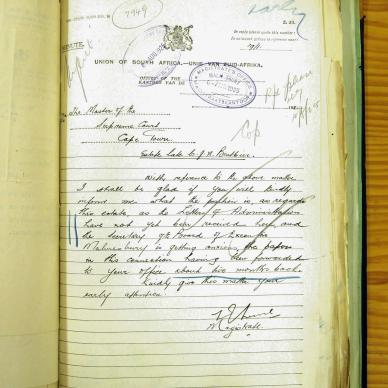 7949
Z. 23.
MINUTE.
UNION OF SOUTH AFRICA.—UNIE VAN ZUID-AFRIKA.
OFFICE OF THE
KANTOOR VAN DE
MAGISTRATE'S OFFICE
MAGISTRAATSKANTOOR
The Master of the
Supreme Court
Cape Town
Estate Late C. J. H.
With reference to the above matter
I shall be glad if you will kindly
inform me what the position is, as regards
this estate, as the Letters of Administration
have not yet been received here and
the Secretary of the Board of Executors
Malmesbury is getting anxious, the papers
in this connection having been forwarded
to your office about two months back.
Kindly give this matter your
early attention.
Magistrate.